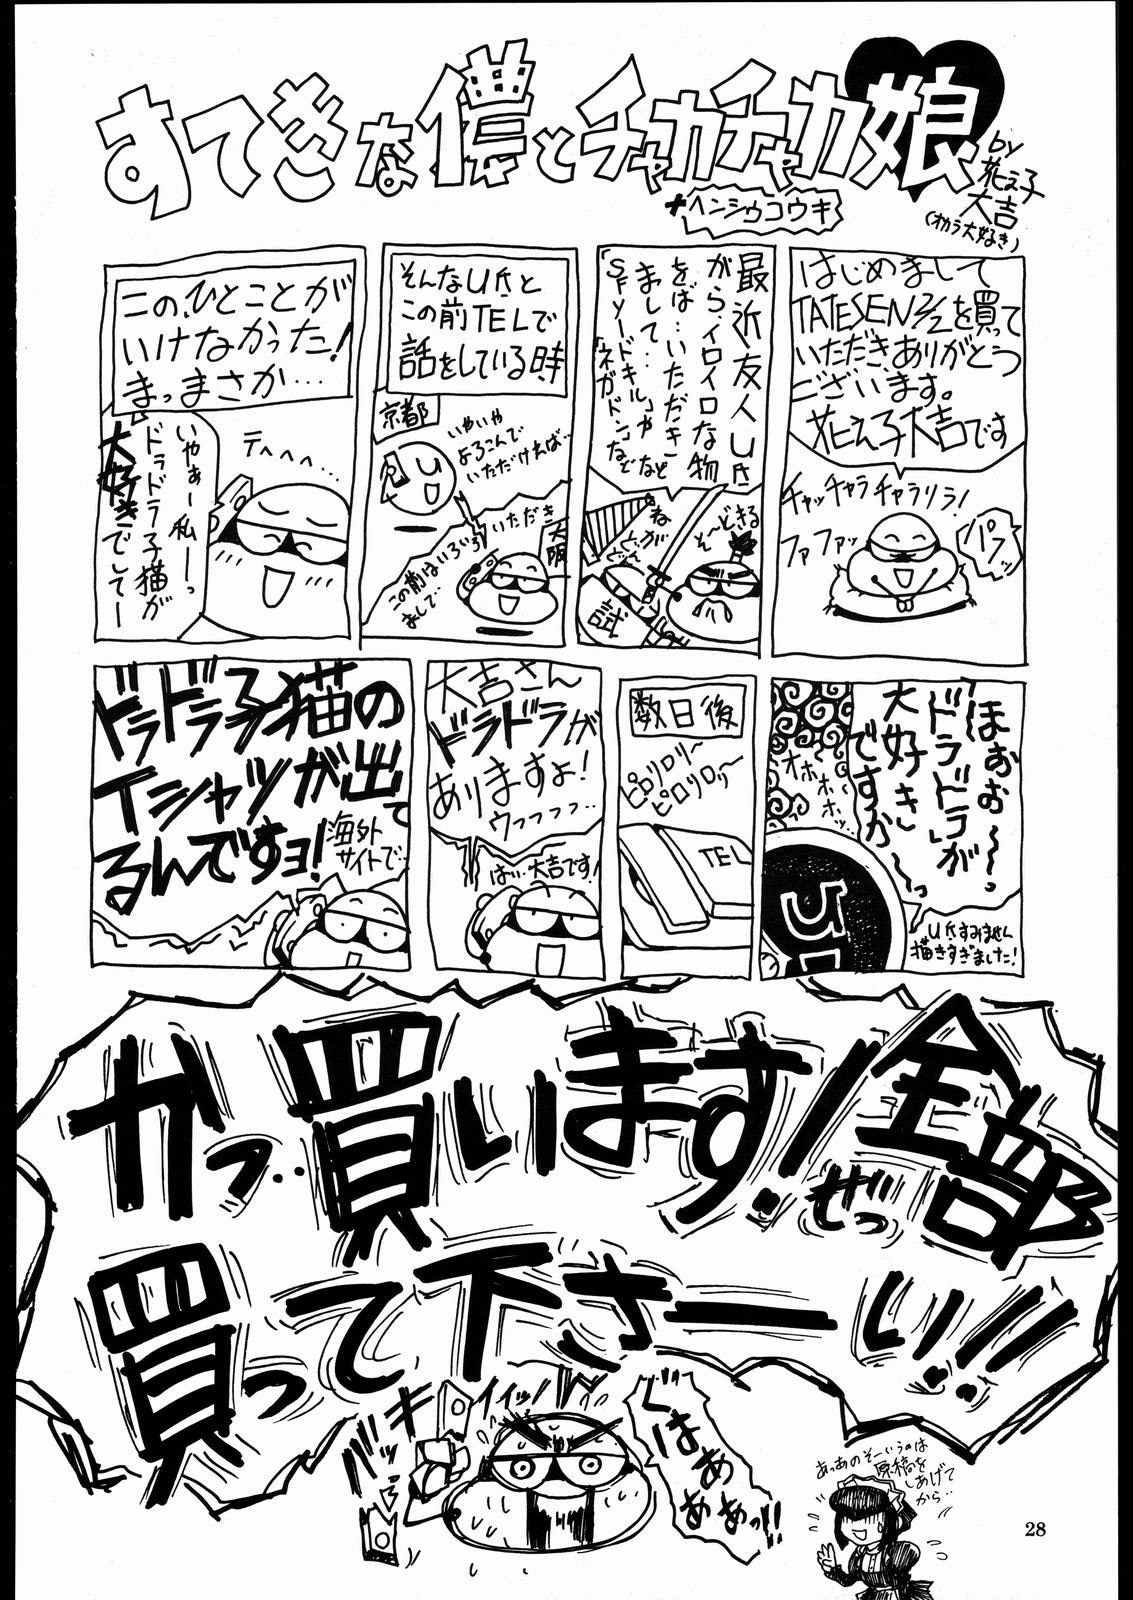 すてきな儂とチャカチャカ娘
+ヘンシュウコウキ
by
花え子
大吉
(オカラ大好き)
はじめまして
TATESEN2/2を買って
いただき、ありがとう
ございます。
花え子大吉です
チャッチャラチャラリラ!
ファファッ
パフッ
最近友人U氏
がらイロイロな物
をば…いただき
まして…
「SFソードキル」や
「ネガドン」などなど
そ～どきる
ねがどん
試
そんなU氏と
この前TELで
話をしている時、
京都
U
いやいや
よろこんで
いただければ…
大阪
いただき
この前はいろいろ
まして…
この、ひとことが
いけなかった!
まっまさか…
テヘヘ…
いやぁー私ーっ
ドラドラ子猫が
大好きでしてー
ほぉお～～っ
「ドラドラ」が
大好き
ですか～っ
オホホホホッ…
U氏すみません
描きすぎました!
数日後
ピロリロリー
ピロリロリィ～
TEL
大吉さん
ドラドラが
ありますよ!
ウフフフフ…
はい…大吉です!
ドラドラ子猫の
Tシャツが出て
るんですヨ!
海外
サイトで…
かっ…買います!全部
ぜっ
買って下さーい!!
イイッ!
バキッ
ぐはぁぁぁぁっ!!
あっあのそーいうのは
原稿を
しあげて
から…
28